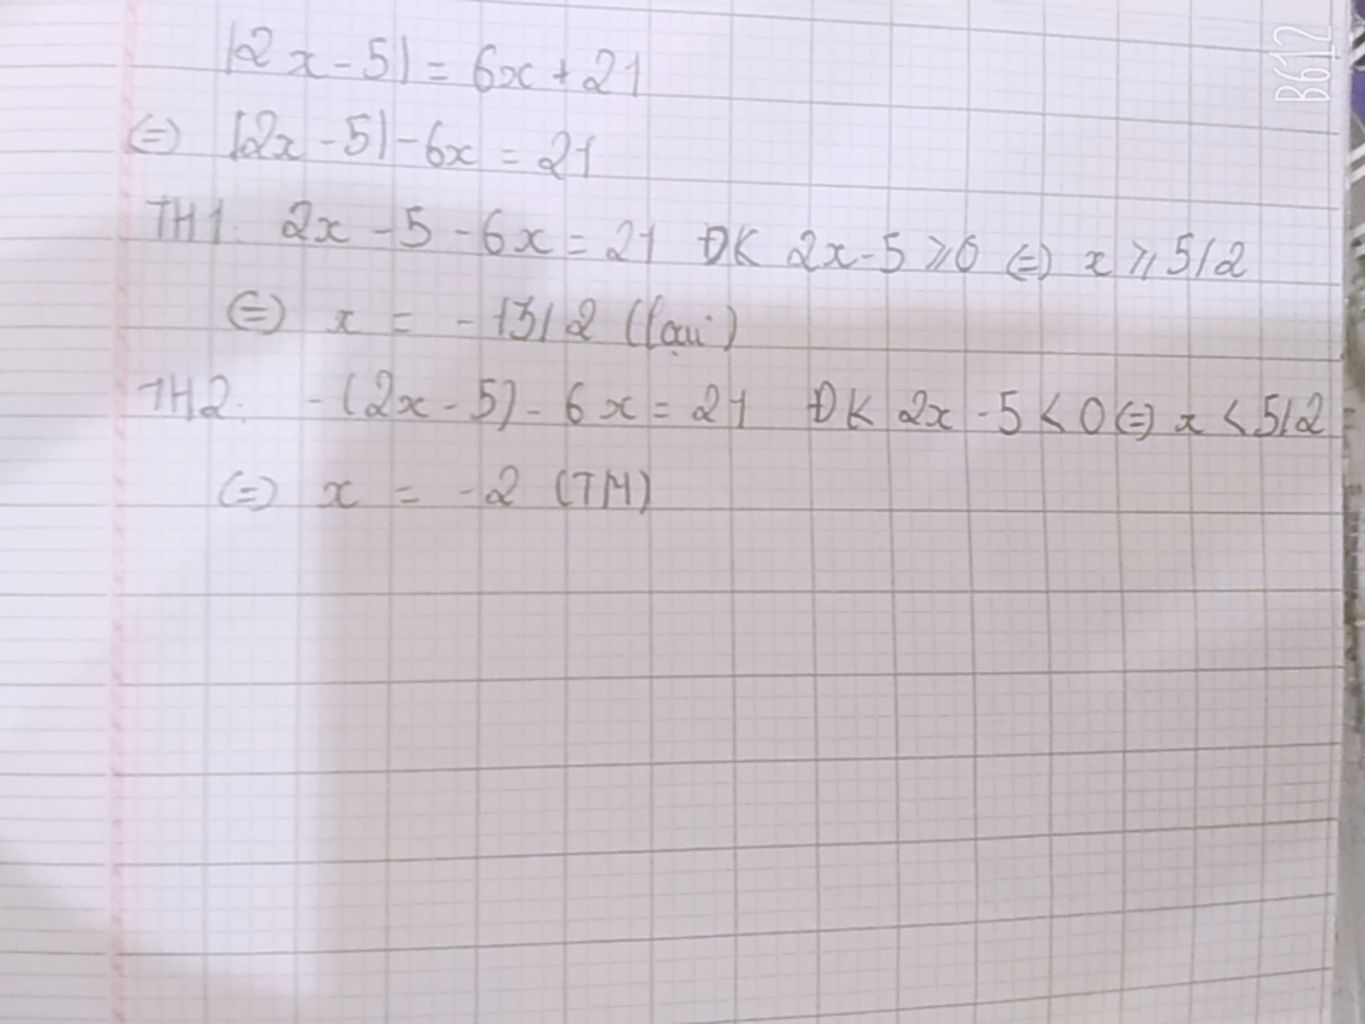 |2x - 5| = 6x + 21
(=) |2x - 5| - 6x = 21
TH1. 2x - 5 - 6x = 21 ĐK 2x - 5 ⩾ 0 (=) x ⩾ 5/2
(=) x = -13/2 (loại)
TH2. -(2x - 5) - 6x = 21 ĐK 2x - 5 < 0 (=) x < 5/2
(=) x = -2 (TM)
B612